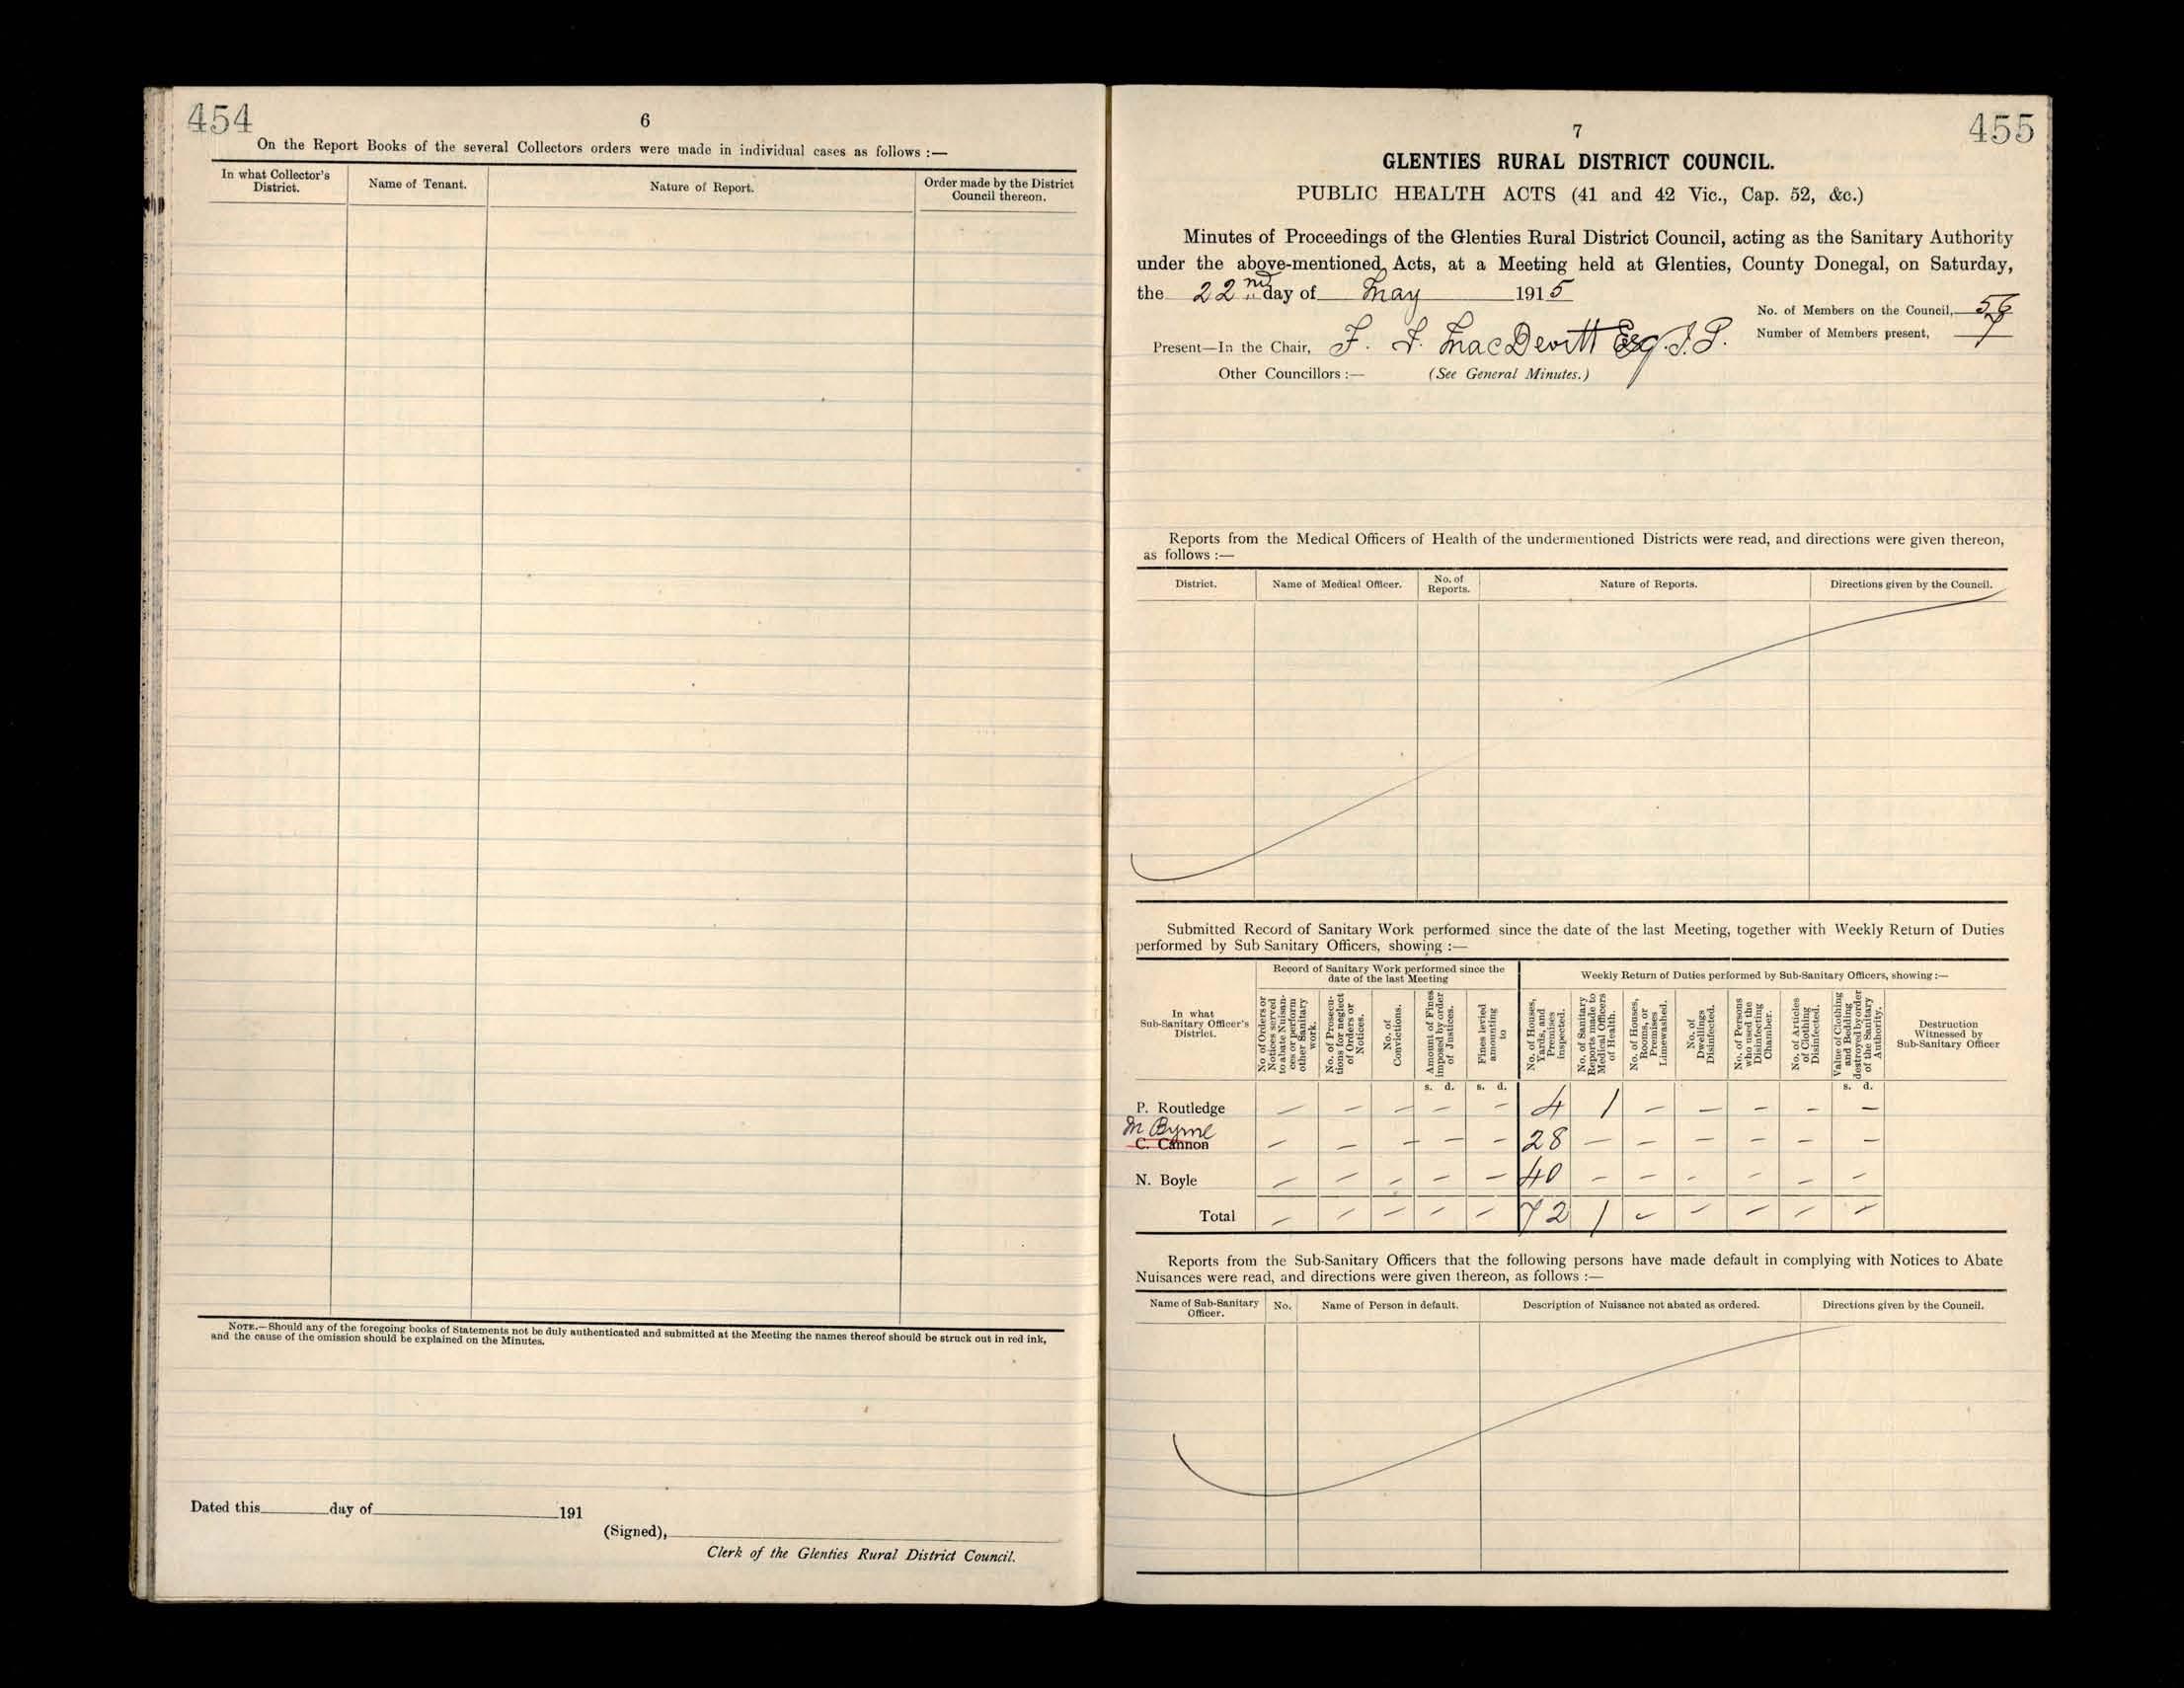 454
6
On the Report Books of the several Collectors orders were made in individual cases as follows :—
In what Collector's District.
Name of Tenant.
Nature of Report.
Order made by the District Council thereon.
NOTE.—Should any of the foregoing books of Statements not be duly authenticated and submitted at the Meeting the names thereof should be struck out in red ink,
and the cause of the omission should be explained on the Minutes.
Dated this day of 191
(Signed),
Clerk of the Glenties Rural District Council.
455
7
GLENTIES RURAL DISTRICT COUNCIL.
PUBLIC HEALTH ACTS (41 and 42 Vic., Cap. 52, &c.)
Minutes of Proceedings of the Glenties Rural District Council, acting as the Sanitary Authority
under the above-mentioned Acts, at a Meeting held at Glenties, County Donegal, on Saturday,
the 22nd day of May 1915
No. of Members on the Council, 56
Number of Members present, 7
Present—In the Chair, F. F. MacDevitt Esq. J.P.
Other Councillors :— (See General Minutes.)
Reports from the Medical Officers of Health of the undermentioned Districts were read, and directions were given thereon,
as follows :—
District.
Name of Medical Officer.
No. of Reports.
Nature of Reports.
Directions given by the Council.
Submitted Record of Sanitary Work performed since the date of the last Meeting, together with Weekly Return of Duties
performed by Sub Sanitary Officers, showing :—
In what Sub-Sanitary Officer's District.
Record of Sanitary Work performed since the date of the last Meeting
Weekly Return of Duties performed by Sub-Sanitary Officers, showing :—
No of Orders or Notices served to abate Nuisances or perform other Sanitary work.
No. of Prosecutions for neglect of Orders or Notices.
No. of Convictions.
Amount of Fines imposed by order of Justices.
Fines levied amounting to
No. of Houses, Yards, and Premises inspected.
No. of Sanitary Reports made to Medical Officers of Health.
No. of Houses, Rooms, or Premises Limewashed.
No. of Dwellings Disinfected.
No. of Persons who used the Disinfecting Chamber.
No. of Articles of Clothing Disinfected.
Value of Clothing and Bedding destroyed by order of the Sanitary Authority.
Destruction Witnessed by Sub-Sanitary Officer
s. d. s. d. s. d.
P. Routledge — — — — — 4 1 — — — — —
M Byrne
C. Cannon — — — — — 28 — — — — — —
N. Boyle — — — — — 40 — — — — — —
Total — — — — — 72 1 — — — — —
Reports from the Sub-Sanitary Officers that the following persons have made default in complying with Notices to Abate
Nuisances were read, and directions were given thereon, as follows :—
Name of Sub-Sanitary Officer.
No.
Name of Person in default.
Description of Nuisance not abated as ordered.
Directions given by the Council.